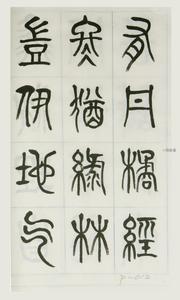 有丹橘經
冬猶綠林
豈伊地气